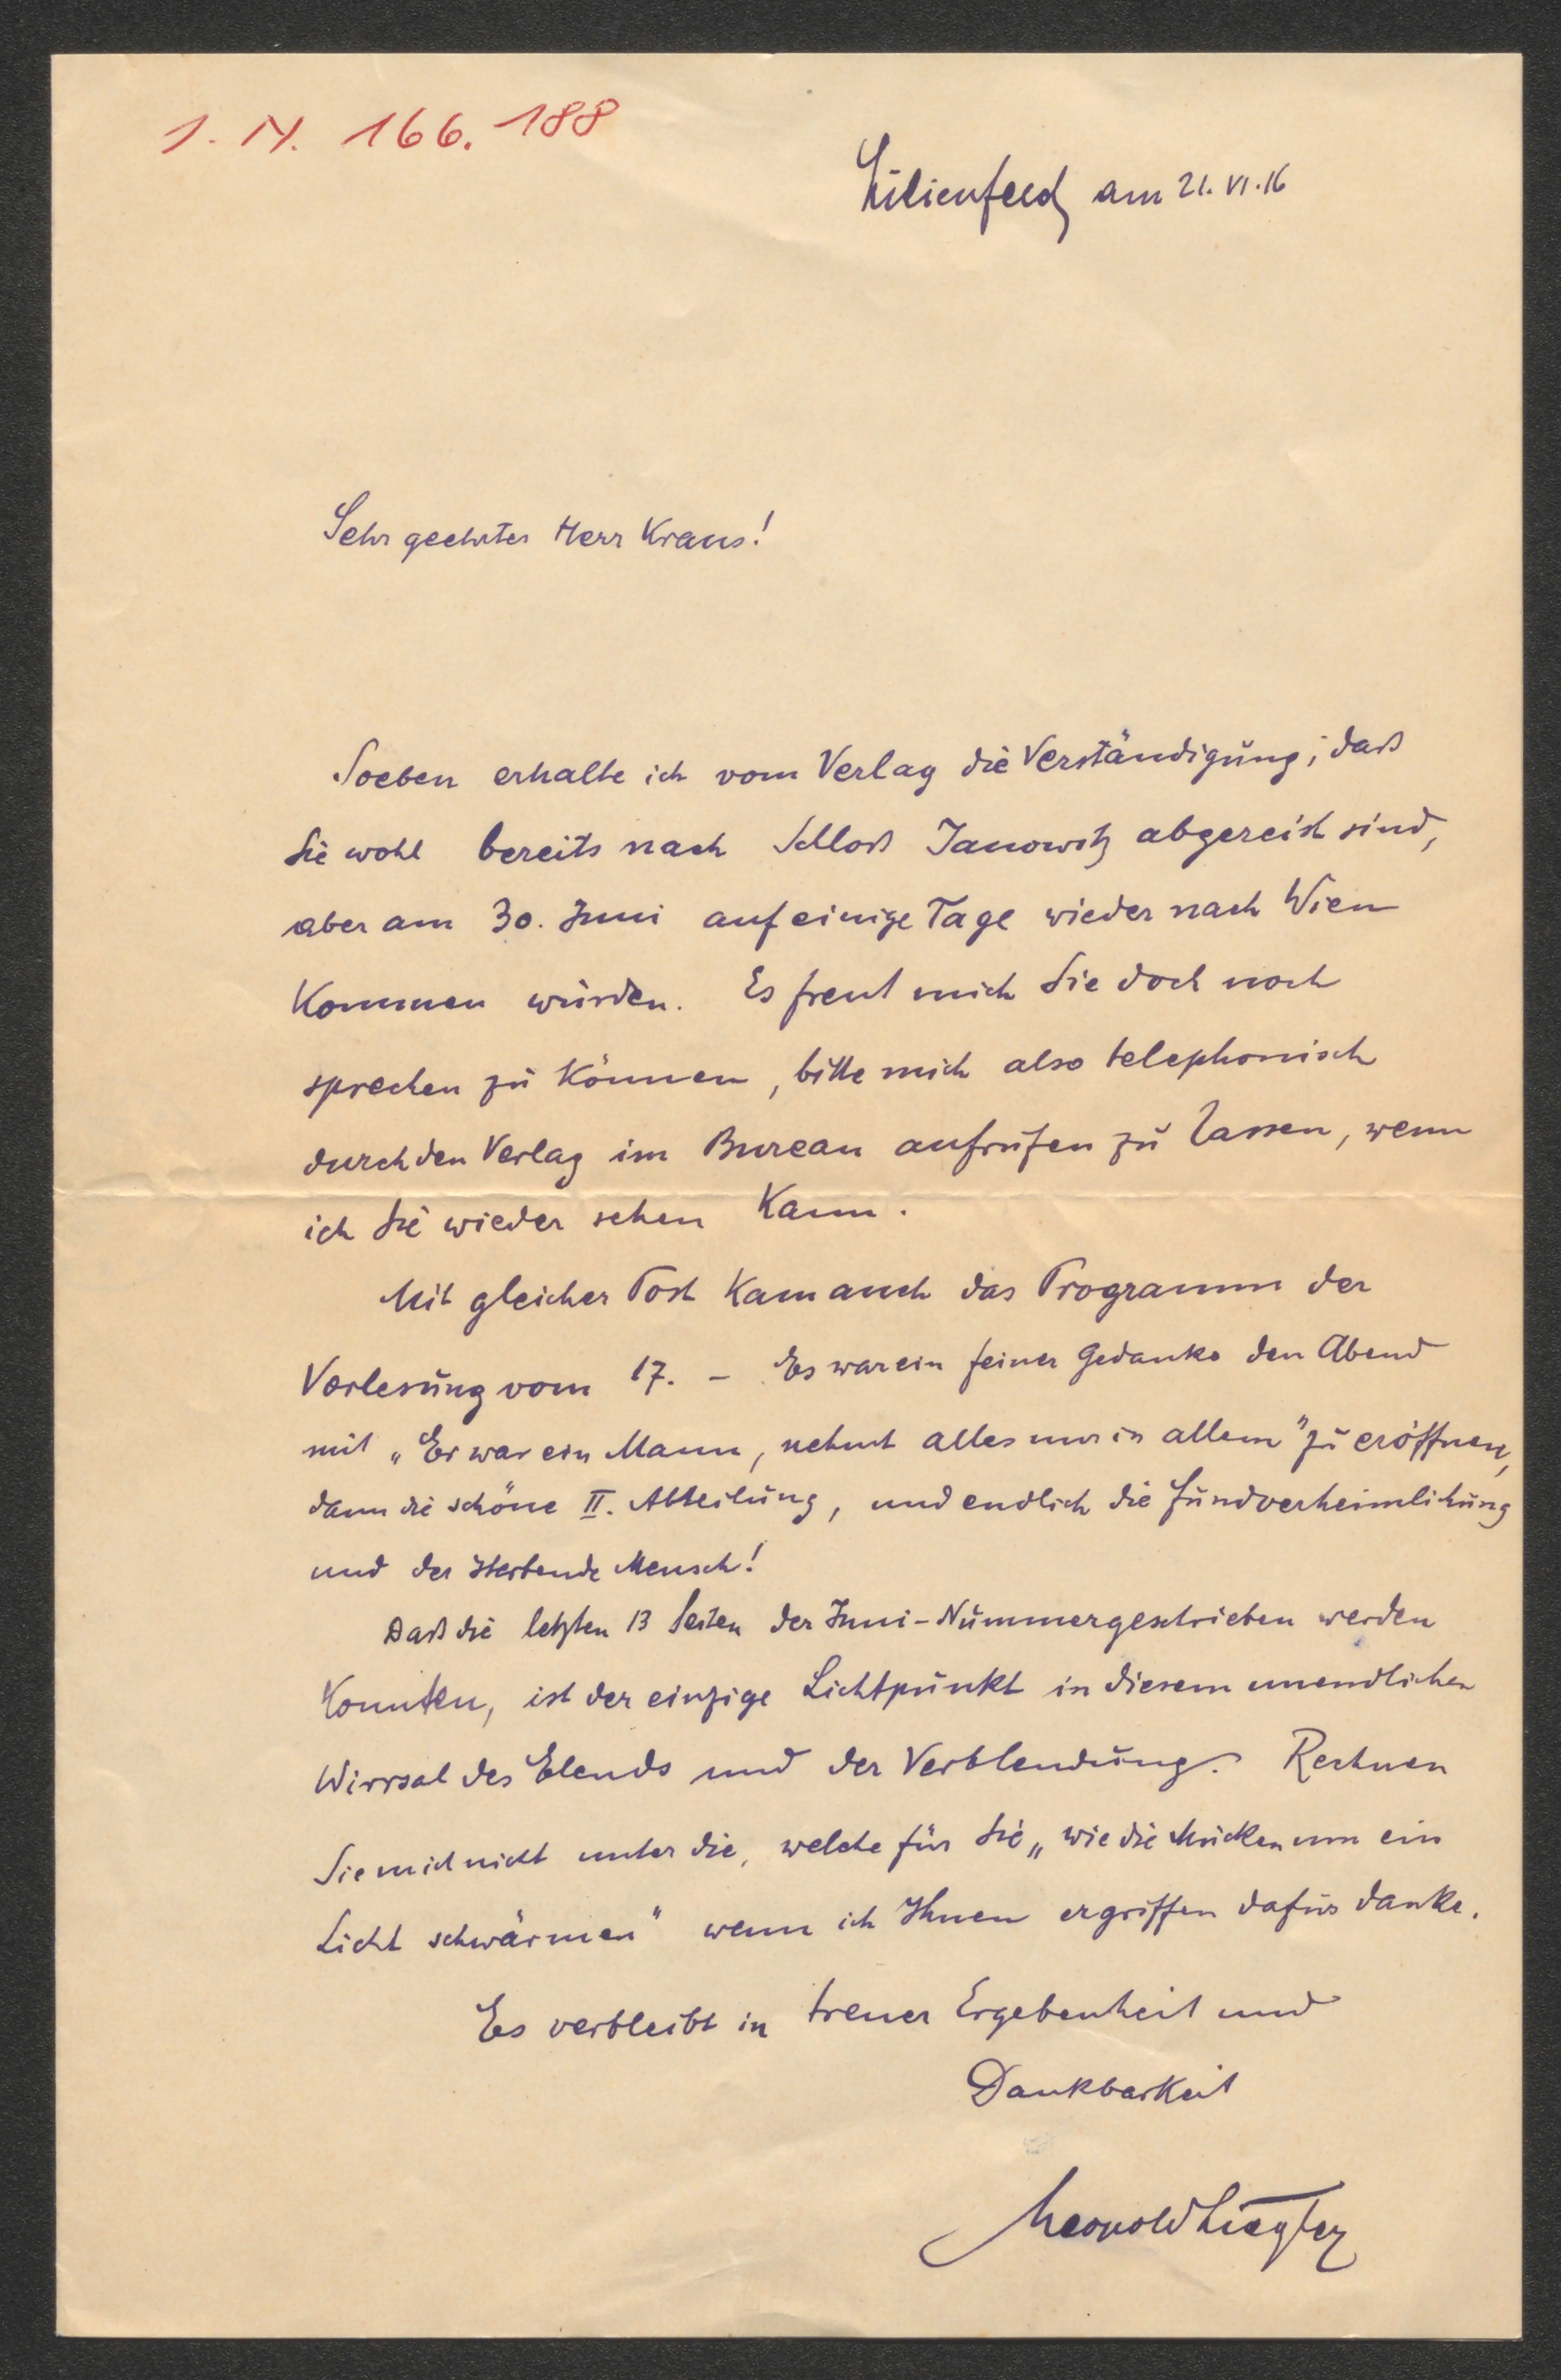 I. N. 166.188
Lilienfeld am 21. VI. 16
Sehr geehrter Herr Kraus!
Soeben erhalte ich vom Verlag die Verständigung, daß
Sie wohl bereits nach Schloß Janowitz abgereist sind,
aber am 30. Juni auf einige Tage wieder nach Wien
kommen würden. Es freut mich Sie doch noch
sprechen zu können, bitte mich also telephonisch
durch den Verlag im Bureau anrufen zu lassen, wenn
ich Sie wieder sehen kann.
Mit gleicher Post kam auch das Programm der
Vorlesung vom 17. – Es war ein feiner Gedanke den Abend
mit „Er war ein Mann, nehmt alles nur in allem" zu eröffnen,
dann die schöne II. Abteilung, und endlich die Fundverheimlichung
und der sterbende Mensch!
Daß die letzten 13 Seiten der Juni-Nummer geschrieben werden
konnten, ist der einzige Lichtpunkt in diesem unendlichen
Wirrsal des Elends und der Verblendung. Rechnen
Sie mich nicht unter die, welche für Sie „wie die Mücken um ein
Licht schwärmen" wenn ich Ihnen ergriffen dafür danke.
Es verbleibt in treuer Ergebenheit und
Dankbarkeit
Leopold Liegler